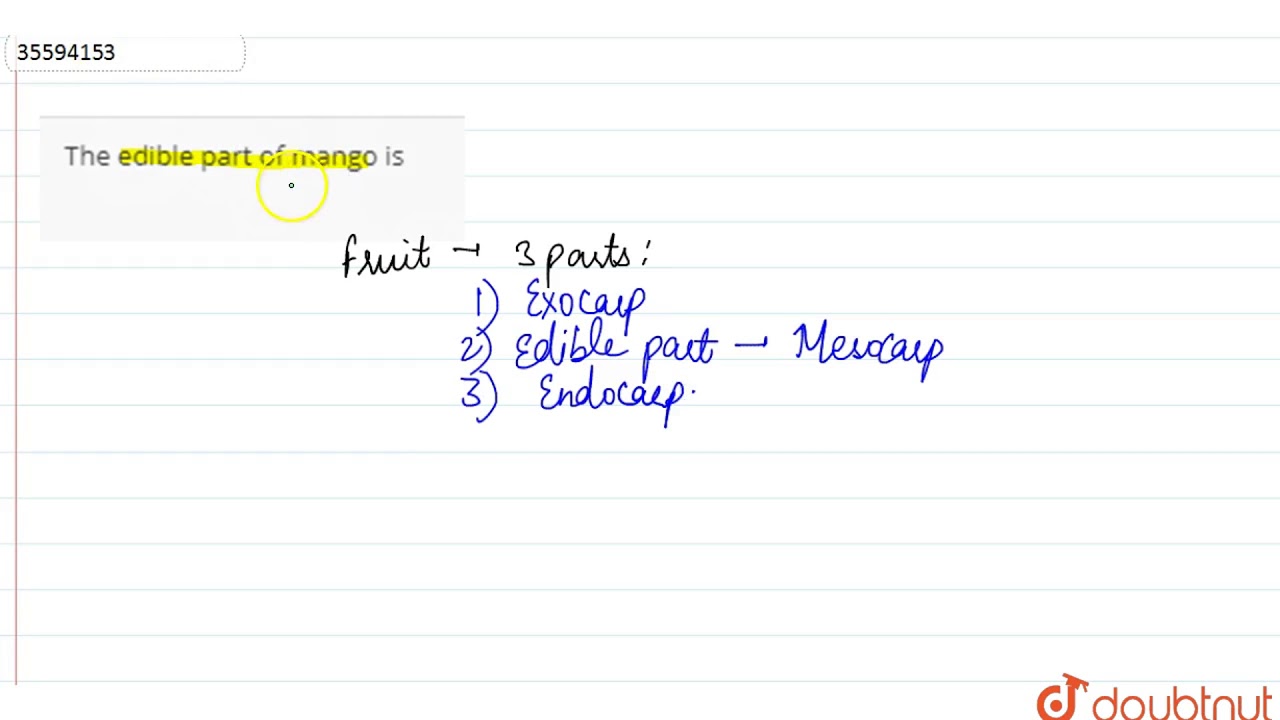 35594153
The edible part of mango is
fruit → 3 parts:
1) Exocarp
2) Edible part → Mesocarp
3) Endocarp.
doubtnut